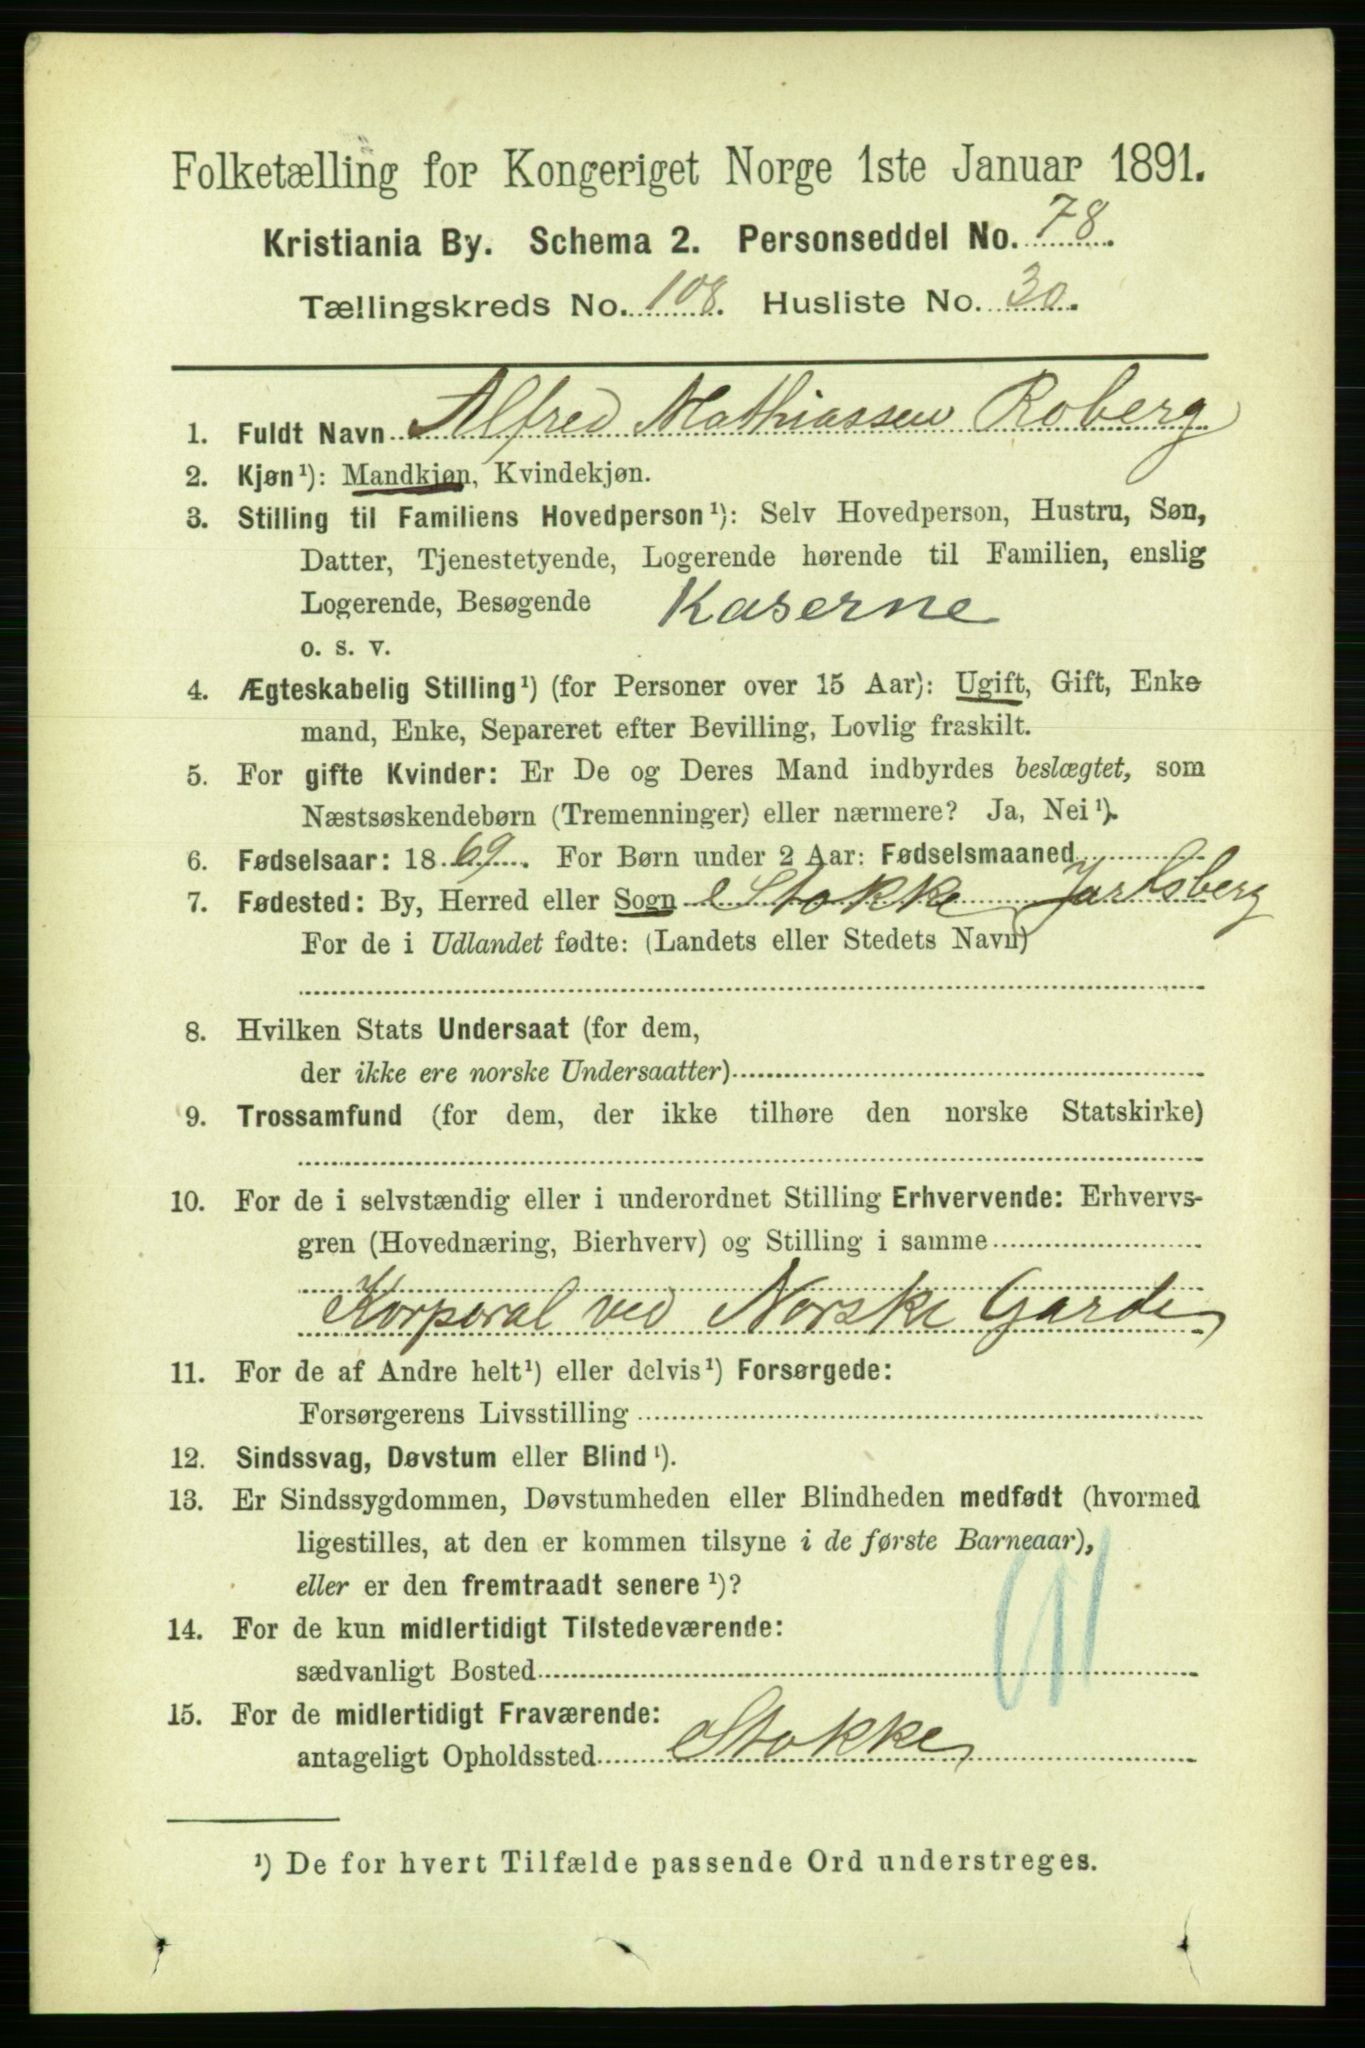 Folketælling for Kongeriget Norge 1ste Januar 1891.
Kristiania By. Schema 2. Personseddel No. 78.
Tællingskreds No. 108. Husliste No. 30.
1. Fuldt Navn Alfred Mathiassen Roberg
2. Kjøn¹): Mandkjøn, Kvindekjøn.
3. Stilling til Familiens Hovedperson¹): Selv Hovedperson, Hustru, Søn,
Datter, Tjenestetyende, Logerende hørende til Familien, enslig
Logerende, Besøgende Kaserne
o. s. v.
4. Ægteskabelig Stilling¹) (for Personer over 15 Aar): Ugift, Gift, Enke-
mand, Enke, Separeret efter Bevilling, Lovlig fraskilt.
5. For gifte Kvinder: Er De og Deres Mand indbyrdes beslægtet, som
Næstsøskendebørn (Tremenninger) eller nærmere? Ja, Nei¹).
6. Fødselsaar: 1869. For Børn under 2 Aar: Fødselsmaaned
7. Fødested: By, Herred eller Sogn Stokke Jarlsberg
For de i Udlandet fødte: (Landets eller Stedets Navn)
8. Hvilken Stats Undersaat (for dem,
der ikke ere norske Undersaatter)
9. Trossamfund (for dem, der ikke tilhøre den norske Statskirke)
10. For de i selvstændig eller i underordnet Stilling Erhvervende: Erhvervs-
gren (Hovednæring, Bierhverv) og Stilling i samme
Korporal ved Norske Garde
11. For de af Andre helt¹) eller delvis¹) Forsørgede:
Forsørgerens Livsstilling
12. Sindssvag, Døvstum eller Blind¹).
13. Er Sindssygdommen, Døvstumheden eller Blindheden medfødt (hvormed
ligestilles, at den er kommen tilsyne i de første Barneaar),
eller er den fremtraadt senere¹)?
14. For de kun midlertidigt Tilstedeværende:
sædvanligt Bosted
15. For de midlertidigt Fraværende:
antageligt Opholdssted Stokke
¹) De for hvert Tilfælde passende Ord understreges.